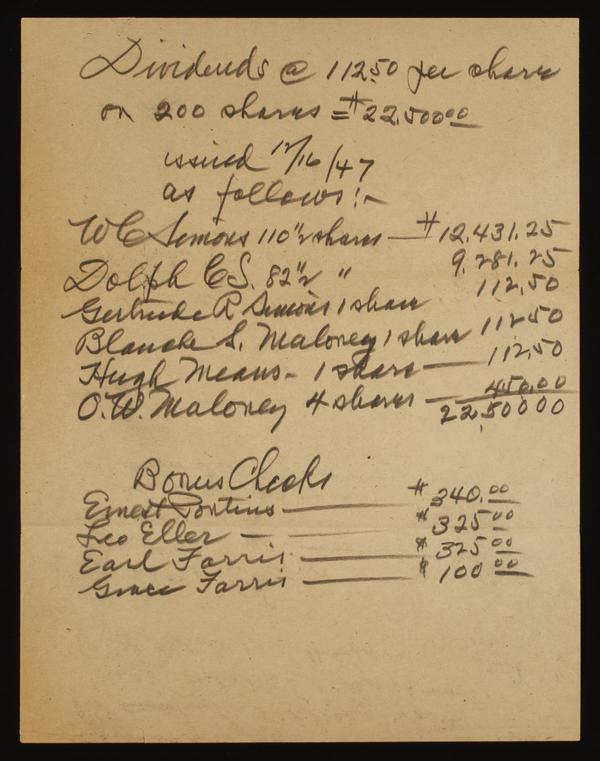 Dividends @ 112.50 per share
on 200 shares = $22,500.00
issued 12/16/47
as follows:-
W C Simons 110 1/2 shares — $12,431.25
Dolph C S. 82 1/2 " 9,281.25
Gertrude R Simons 1 share 112.50
Blanche S. Maloney 1 share 112.50
Hugh Means - 1 share — 112.50
O.W. Maloney 4 shares — 450.00
22,500.00
Bonus Checks
Ernest Pontius — $340.00
Leo Eller — $325.00
Earl Farris — $325.00
Grace Farris — $100.00